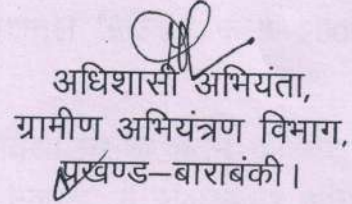 अधिशासी अभियंता,
ग्रामीण अभियंत्रण विभाग,
प्रखण्ड–बाराबंकी।